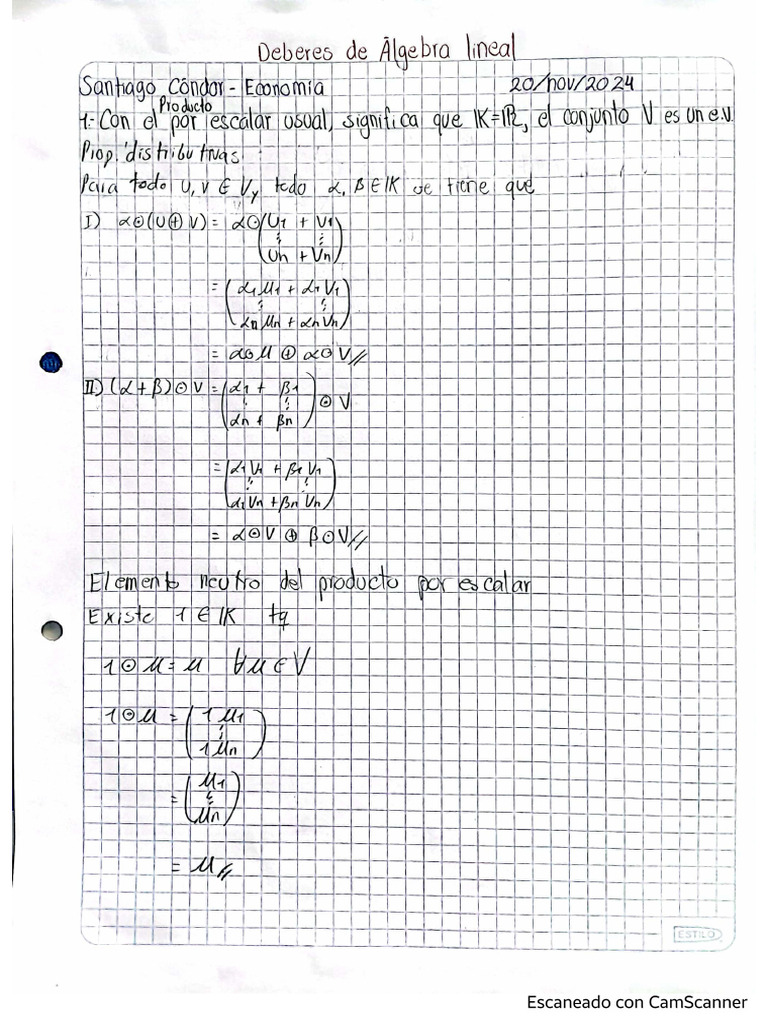 Deberes de Álgebra lineal
Santiago Cóndor - Economía 20/nov/2024
Producto
1.- Con el por escalar usual, significa que IK=IR, el conjunto V es un e.v.
Prop. distributivas
Para todo u, v ∈ V, y todo α, β ∈ IK se tiene que
I) α⊙(u⊕v) = α⊙(u1 + v1
⋮ ⋮
un + vn)
= (α1 u1 + α1 v1
⋮ ⋮
αn un + αn vn)
= α⊙u ⊕ α⊙v//
II) (α+β)⊙v = (α1 + β1
⋮ ⋮
αn + βn) ⊙ v
= (α1 v1 + β1 v1
⋮ ⋮
α1 vn + βn vn)
= α⊙v ⊕ β⊙v//
Elemento neutro del producto por escalar
Existe 1 ∈ IK tq
1⊙u = u ∀u ∈ V
1⊙u = (1 u1
⋮
1 un)
= (u1
⋮
un)
= u//
ESTILO
Escaneado con CamScanner